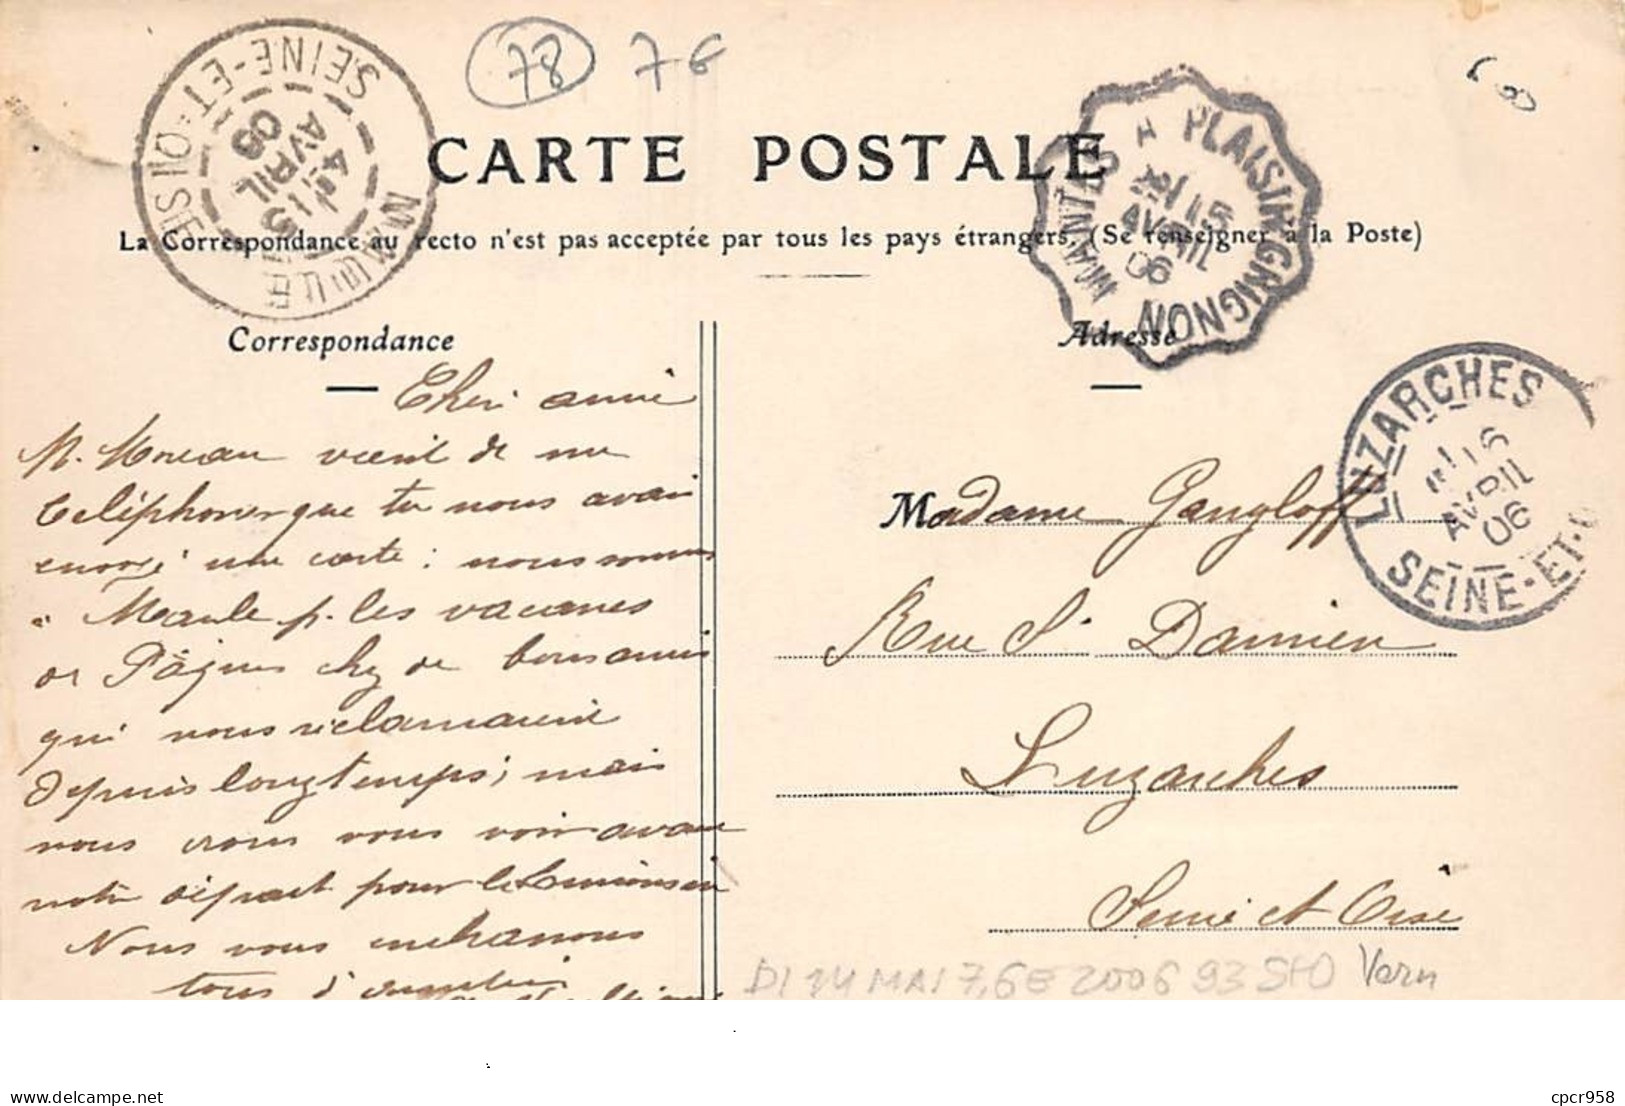 78 7 6
CARTE POSTALE
La Correspondance au recto n'est pas acceptée par tous les pays étrangers. (Se renseigner à la Poste)
MAULE SEINE-ET-OISE
4E 15
AVRIL
06
MANTES A PLAISIR-GRIGNON
15
AVRIL
06
Correspondance
Adresse
LUZARCHES
16
AVRIL
06
SEINE-ET-O
Cher ami
M. Moreau vient de me
téléphoner que tu nous avais
envoyé une carte : nous sommes
à Maule p. les vacances
de Pâques chez de bons amis
qui nous réclamaient
depuis longtemps ; mais
nous irons vous voir avant
notre départ pour le Limousin
Nous vous embrassons
tous
Madame Gangloff
Rue St Damien
Luzarches
Seine et Oise
DI 14 MAI 7,6E 2006 93 StO Vern
www.delcampe.net
cpcr958